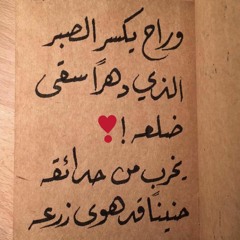 وراح يكسر الصبر
الذي دهراً سقى
ضلعه !
يخرب من حدائقه
حنيناً قد هوى زرعه